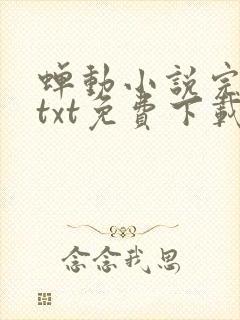 蝉動小説完
txt免費下載
念念我思